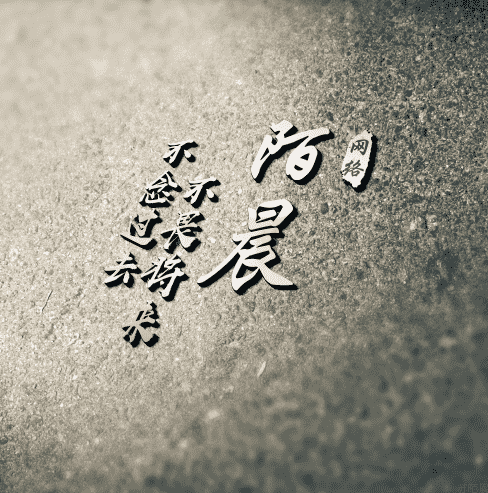 网络
陌晨
不畏将来
不念过去